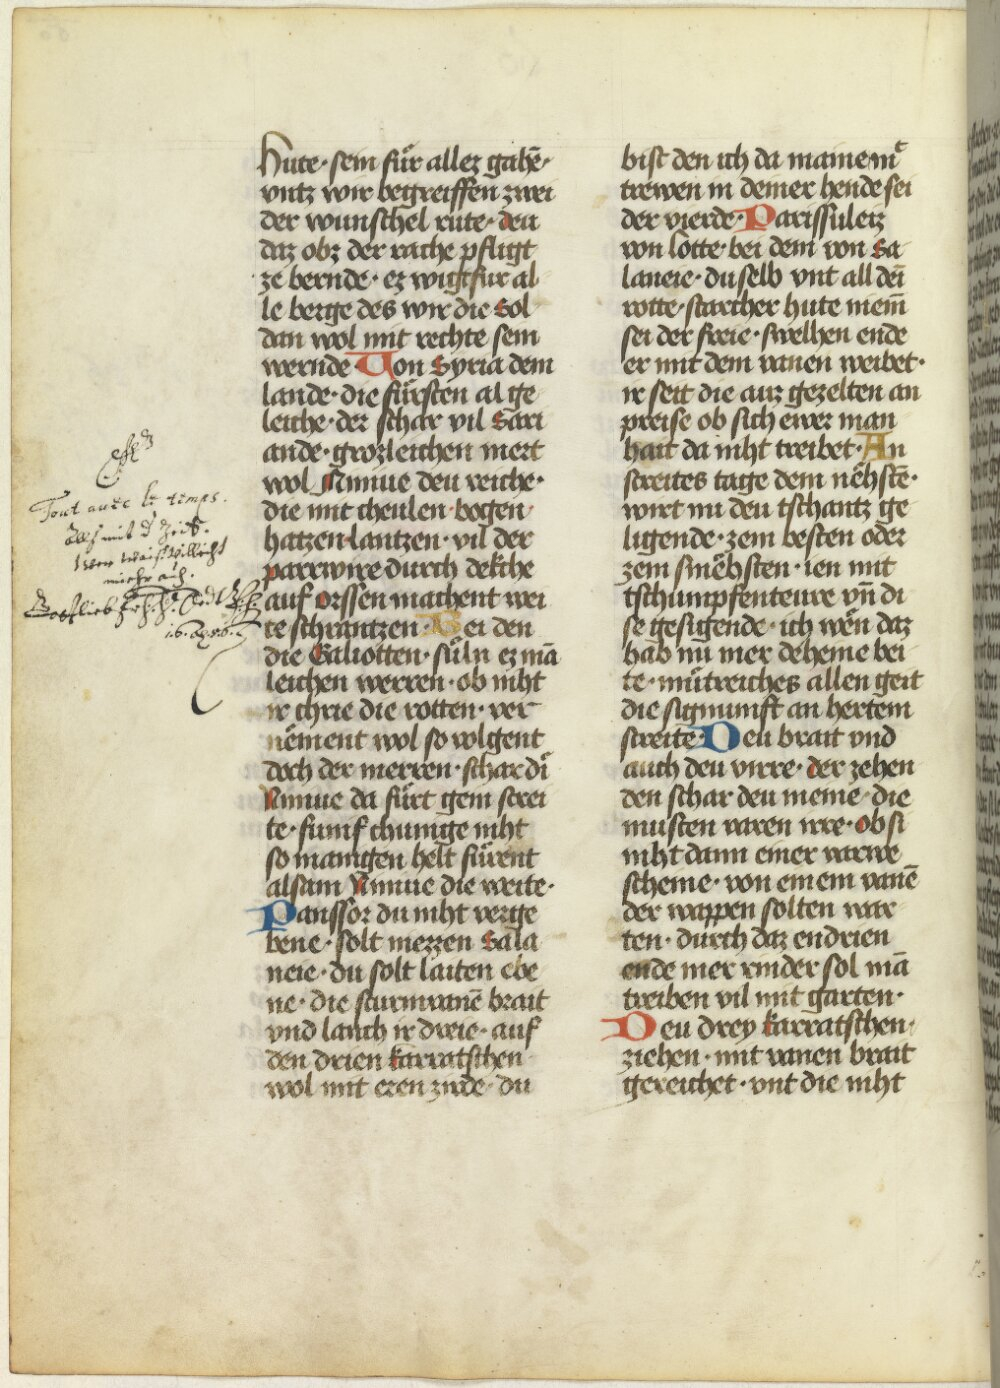 hute · sein fuͤr allez gahē ·
vntz wir begreiffen zwei
der wunschel rute · deu
daz obz der rache pfligt
ze bernde · ez wigt fur al
le berge des wir die Sol
dan wol mit rechte sein
wernde · Von Syria dem
lande · die fuͤrsten al ge
leiche · der schar vil Sari
ande · grozleichen mert
wol Ninive deu reiche ·
die mit cheulen · bogen ·
hatzen · lantzen · vil der
parrwire durch dekche
auf orssen machent wei
te schrantzen · Bei den
die Galiotten · suͤln ez mā
leichen werren · ob niht
ir chrie die rotten · ver
nement wol so volgent
doch der merren · schar di
Ninive da fuͤrt gein strei
te · funif chunige niht
so manigen helt fuͤrent
alsam Ninive die weite ·
Panssor du niht verge
bene · solt mezzen Sala
neie · du solt laiten ebe
ne · die sturmvanē brait
vnd lanch ir dreie · auf
den drien karratschen
wol mit eren zirde · du
bist den ich da maine mͭ
trewen in deiner hende sei
der vierde · Parissuleiz
von Lotte · bei dem von Sa
laneie · du selb vnt all dei
rotte · starcher hute niem̄
sei der freie · swelhen ende
er mit dem vanen weibet ·
ir seit die auz gezelten an
preise ob sich ewer man
hait da niht treibet · An
streites tage dem nehstē ·
wirt nu deu tschantz ge
ligende · zem besten oder
zem smehsten · ien mit
tschumpfenteure vn̄ di
se gesigende · ich wen daz
hab nu mer deheine bei
te · muͤtreiches allen geit
die sigmunift an hertem
streite · Deu brait vnd
auch deu virre · der zehen
den schar deu meine · die
musten varen irre · ob si
niht dann einer varwe
scheine · von einem vanē
der wappen solten war
ten · durch daz endrien
ende mer rinder sol mā
treiben vil mit garten ·
Deu drey karratschen ·
ziehen · mit vanen brait
gereichet · vnt die niht
Tout avec le temps.
Alls mit d Zeit.
Wer waist villeicht
mich auch.
Gottlieb